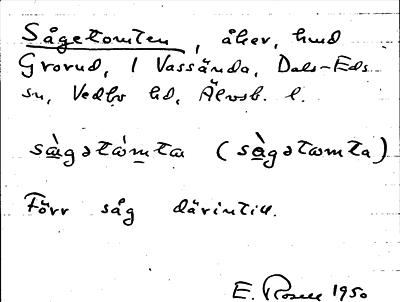 Sågetomten, åker, hmd
Grorud, 1 Vassända, Dals-Eds
sn, Vedbo hd, Älvsb. l.
sàgətòmta (sàgətomta)
Förr såg därintill.
E. Rosell 1950